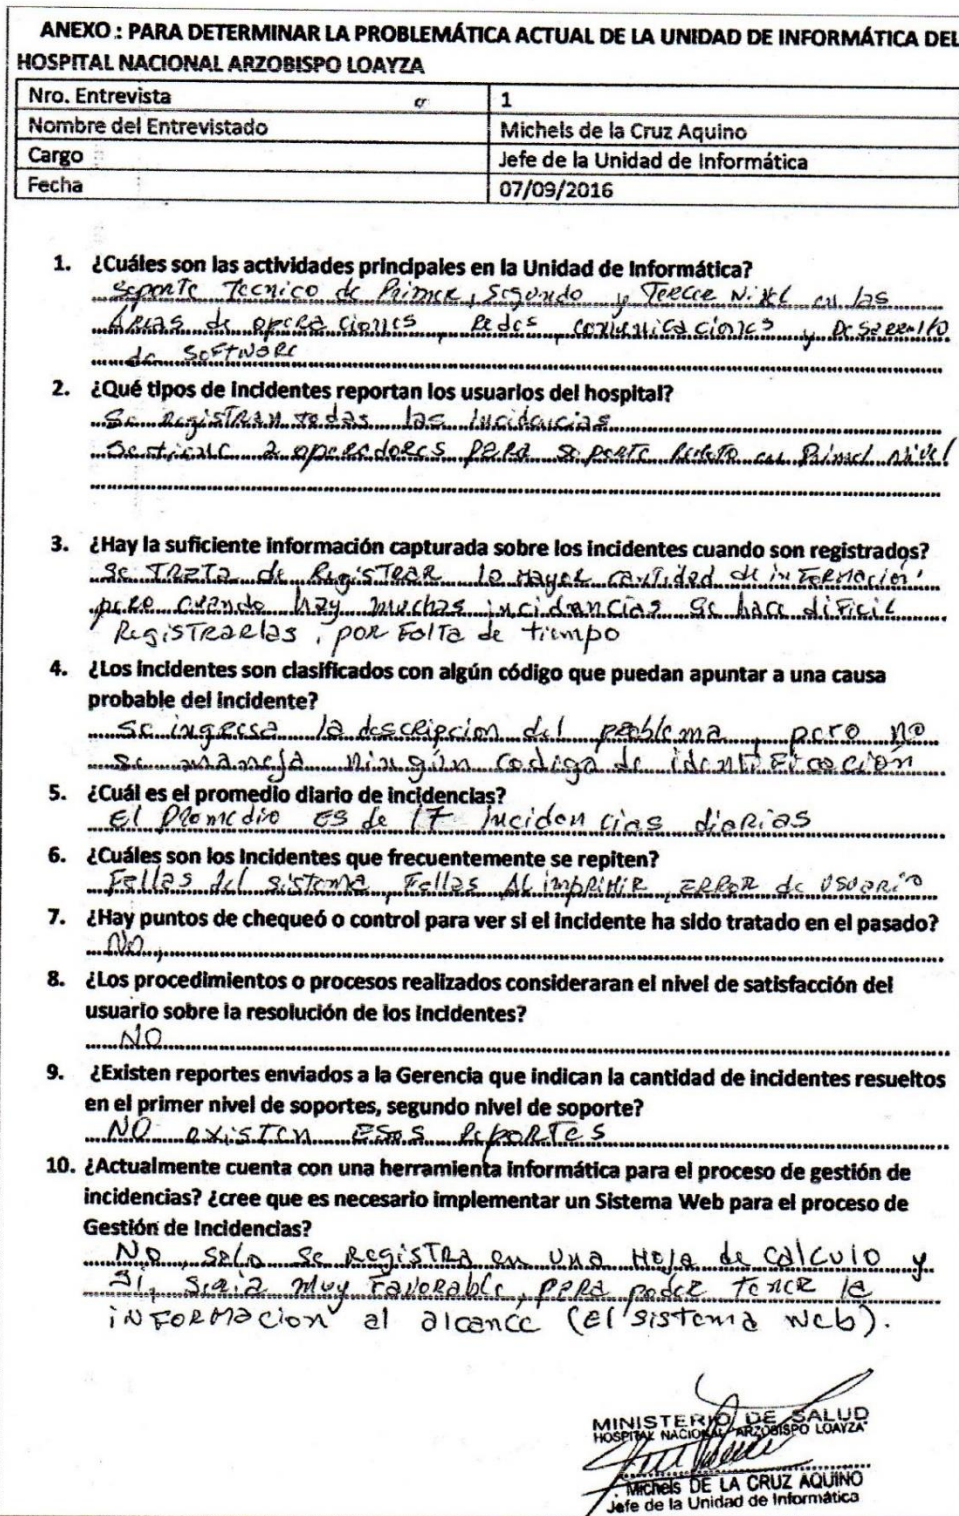 ANEXO : PARA DETERMINAR LA PROBLEMÁTICA ACTUAL DE LA UNIDAD DE INFORMÁTICA DEL
HOSPITAL NACIONAL ARZOBISPO LOAYZA
Nro. Entrevista 1
Nombre del Entrevistado Michels de la Cruz Aquino
Cargo Jefe de la Unidad de Informática
Fecha 07/09/2016
1. ¿Cuáles son las actividades principales en la Unidad de Informática?
Soporte Tecnico de Primer, Segundo y Tercer Nivel en las
Areas de operaciones, Redes, comunicaciones y Desarrollo
de Software
2. ¿Qué tipos de incidentes reportan los usuarios del hospital?
Se Registran todas las Incidencias
Se tiene 2 operadores para soporte en Primel nivel
3. ¿Hay la suficiente información capturada sobre los incidentes cuando son registrados?
Se Trata de Registrar la mayor cantidad de información
pero cuando hay muchas incidancias se hace dificil
Registrarlas, por Falta de tiempo
4. ¿Los incidentes son clasificados con algún código que puedan apuntar a una causa
probable del incidente?
Se ingresa la descripcion del problema, pero no
se maneja ningún codigo de identificación
5. ¿Cuál es el promedio diario de incidencias?
El Promedio es de 17 Incidencias diarias
6. ¿Cuáles son los Incidentes que frecuentemente se repiten?
Fallas del sistema, Fallas Al imprimir, Error de usuario
7. ¿Hay puntos de chequeó o control para ver si el incidente ha sido tratado en el pasado?
No,
8. ¿Los procedimientos o procesos realizados consideraran el nivel de satisfacción del
usuario sobre la resolución de los incidentes?
NO
9. ¿Existen reportes enviados a la Gerencia que indican la cantidad de incidentes resueltos
en el primer nivel de soportes, segundo nivel de soporte?
NO existen Esos Reportes
10. ¿Actualmente cuenta con una herramienta informática para el proceso de gestión de
incidencias? ¿cree que es necesario implementar un Sistema Web para el proceso de
Gestión de Incidencias?
No, solo se Registra en una Hoja de calculo y
Si, seria muy Favorable, para poder tener la
informacion al alcance (el sistema web).
MINISTERIO DE SALUD
HOSPITAL NACIONAL ARZOBISPO LOAYZA
Michels DE LA CRUZ AQUINO
Jefe de la Unidad de Informática